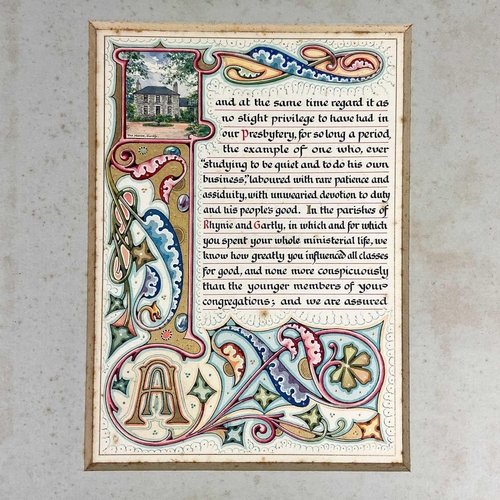 and at the same time regard it as
no slight privilege to have had in
our Presbytery, for so long a period,
the example of one who, ever
"studying to be quiet and to do his own
business," laboured with rare patience and
assiduity, with unwearied devotion to duty
and his people's good. In the parishes of
Rhynie and Gartly, in which and for which
you spent your whole ministerial life, we
know how greatly you influenced all classes
for good, and none more conspicuously
than the younger members of your
congregations; and we are assured
A